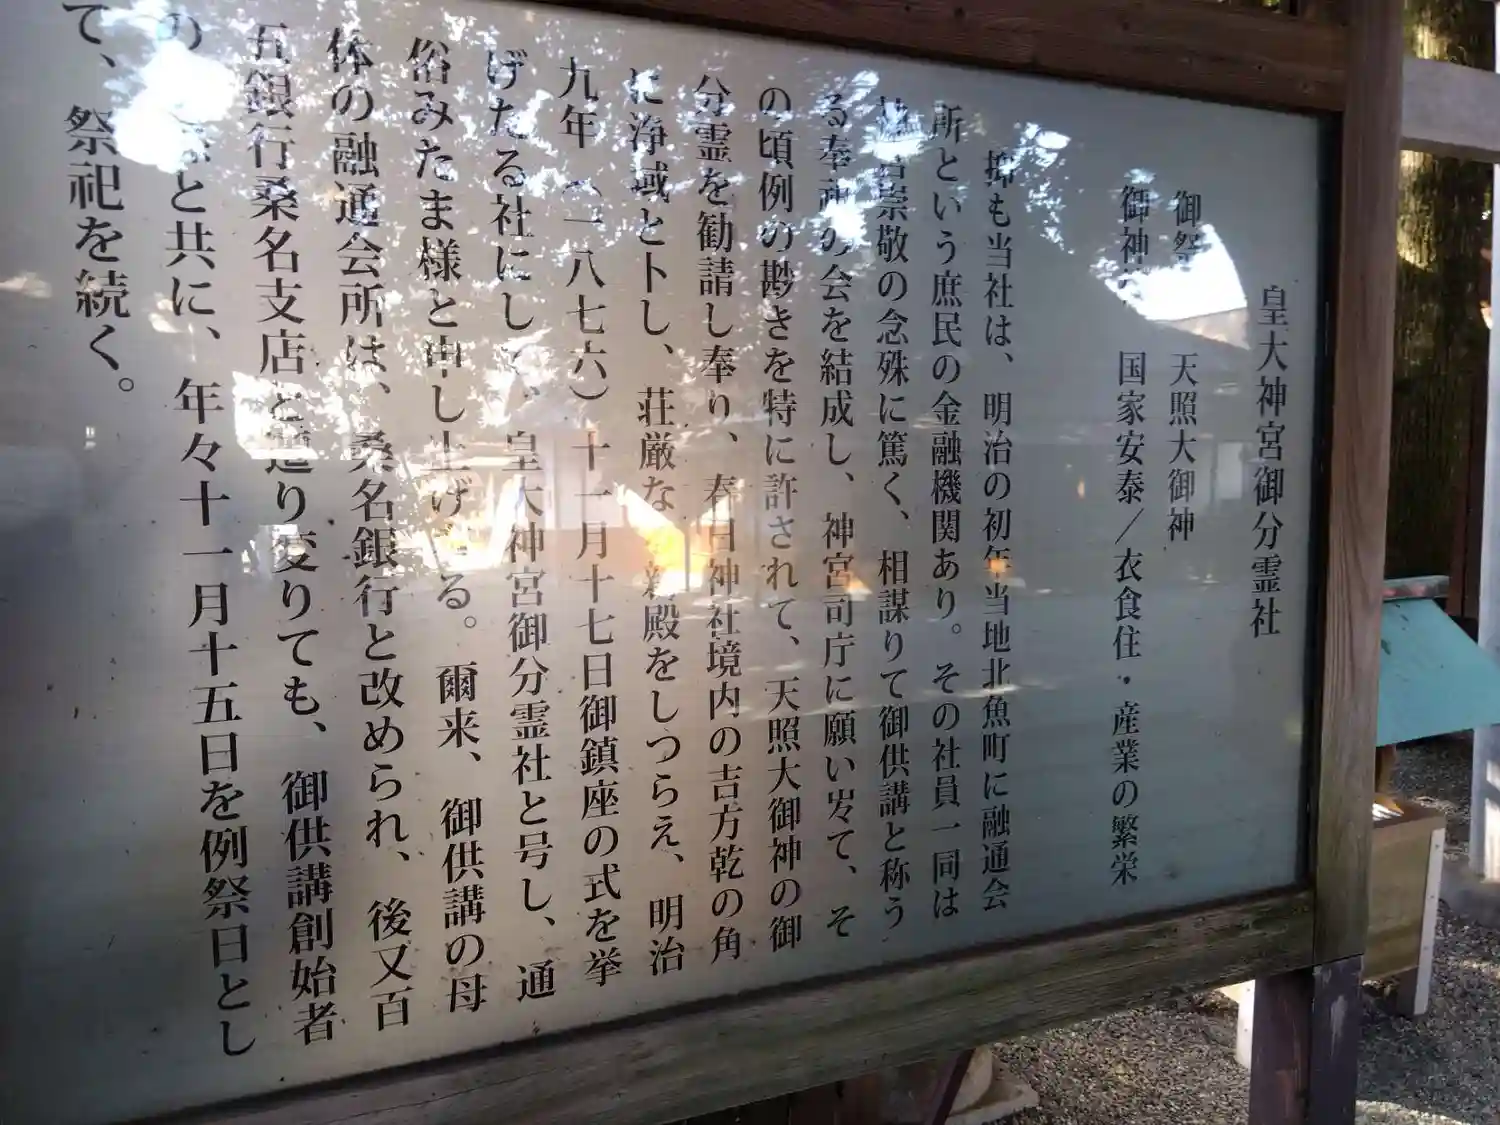 皇大神宮御分霊社
御祭 天照大御神
御神 国家安泰／衣食住・産業の繁栄
抑も当社は、明治の初年当地北魚町に融通会
所という庶民の金融機関あり。その社員一同は
崇敬の念殊に篤く、相謀りて御供講と称う
る奉祀の会を結成し、神宮司庁に願い出て、そ
の頃例の尠きを特に許されて、天照大御神の御
分霊を勧請し奉り、春日神社境内の吉方乾の角
に浄域と卜し、荘厳な 新殿をしつらえ、明治
九年（一八七六）十一月十七日御鎮座の式を挙
げたる社にして、皇大神宮御分霊社と号し、通
俗みたま様と申し上げ る。爾来、御供講の母
体の融通会所は、桑名銀行と改められ、後又百
五銀行桑名支店と遷り変りても、御供講創始者
の と共に、年々十一月十五日を例祭日とし
て、祭祀を続く。